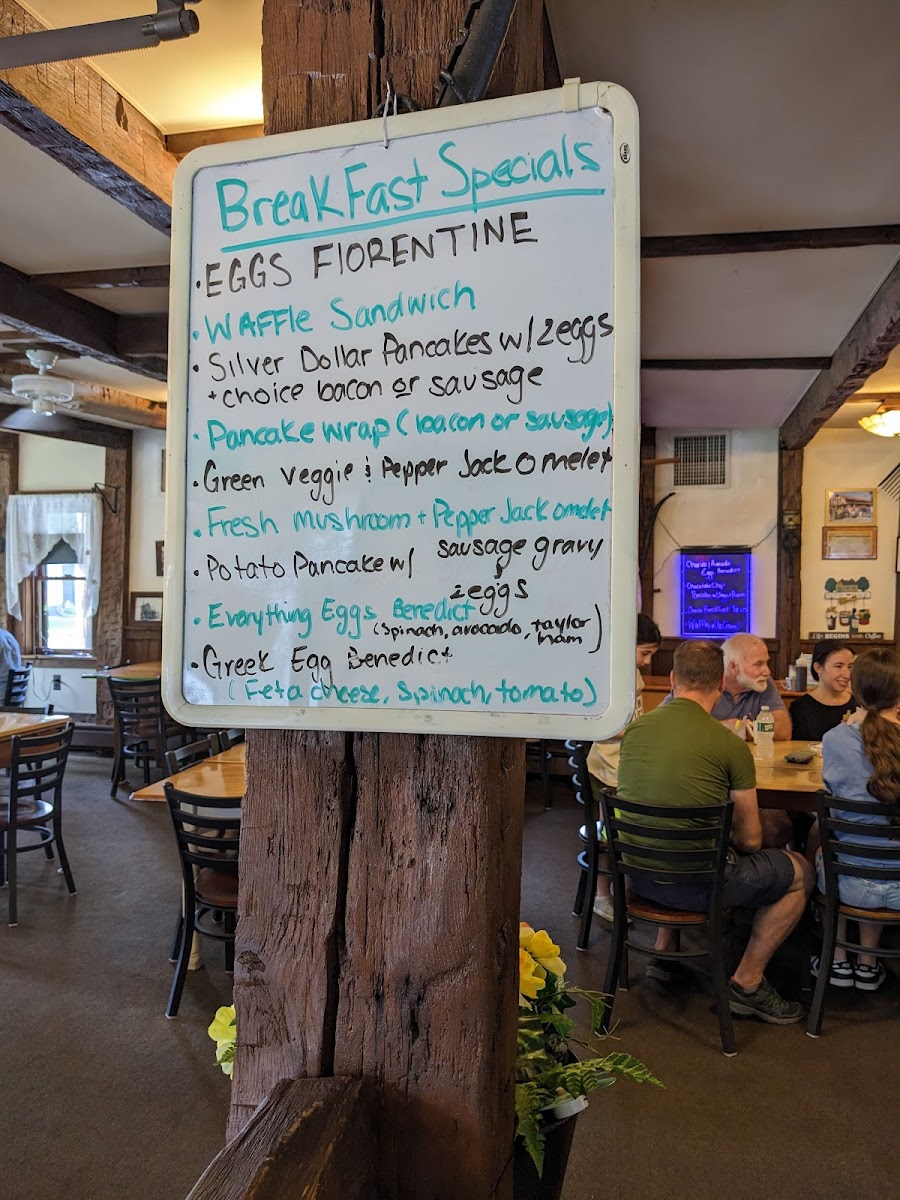 BreakFast Specials
· EGGS FlORENTINE
· WAFFle Sandwich
· Silver Dollar Pancakes w/ 2eggs
+ choice bacon or sausage
· Pancake wrap (bacon or sausage)
· Green veggie & Pepper Jack omelet
· Fresh mushroom + Pepper Jack omelet
· Potato Pancake w/ sausage gravy
& 2eggs
· Everything Eggs Benedict
(spinach, avocado, taylor ham)
· Greek Egg Benedict
(Feta cheese, spinach, tomato)